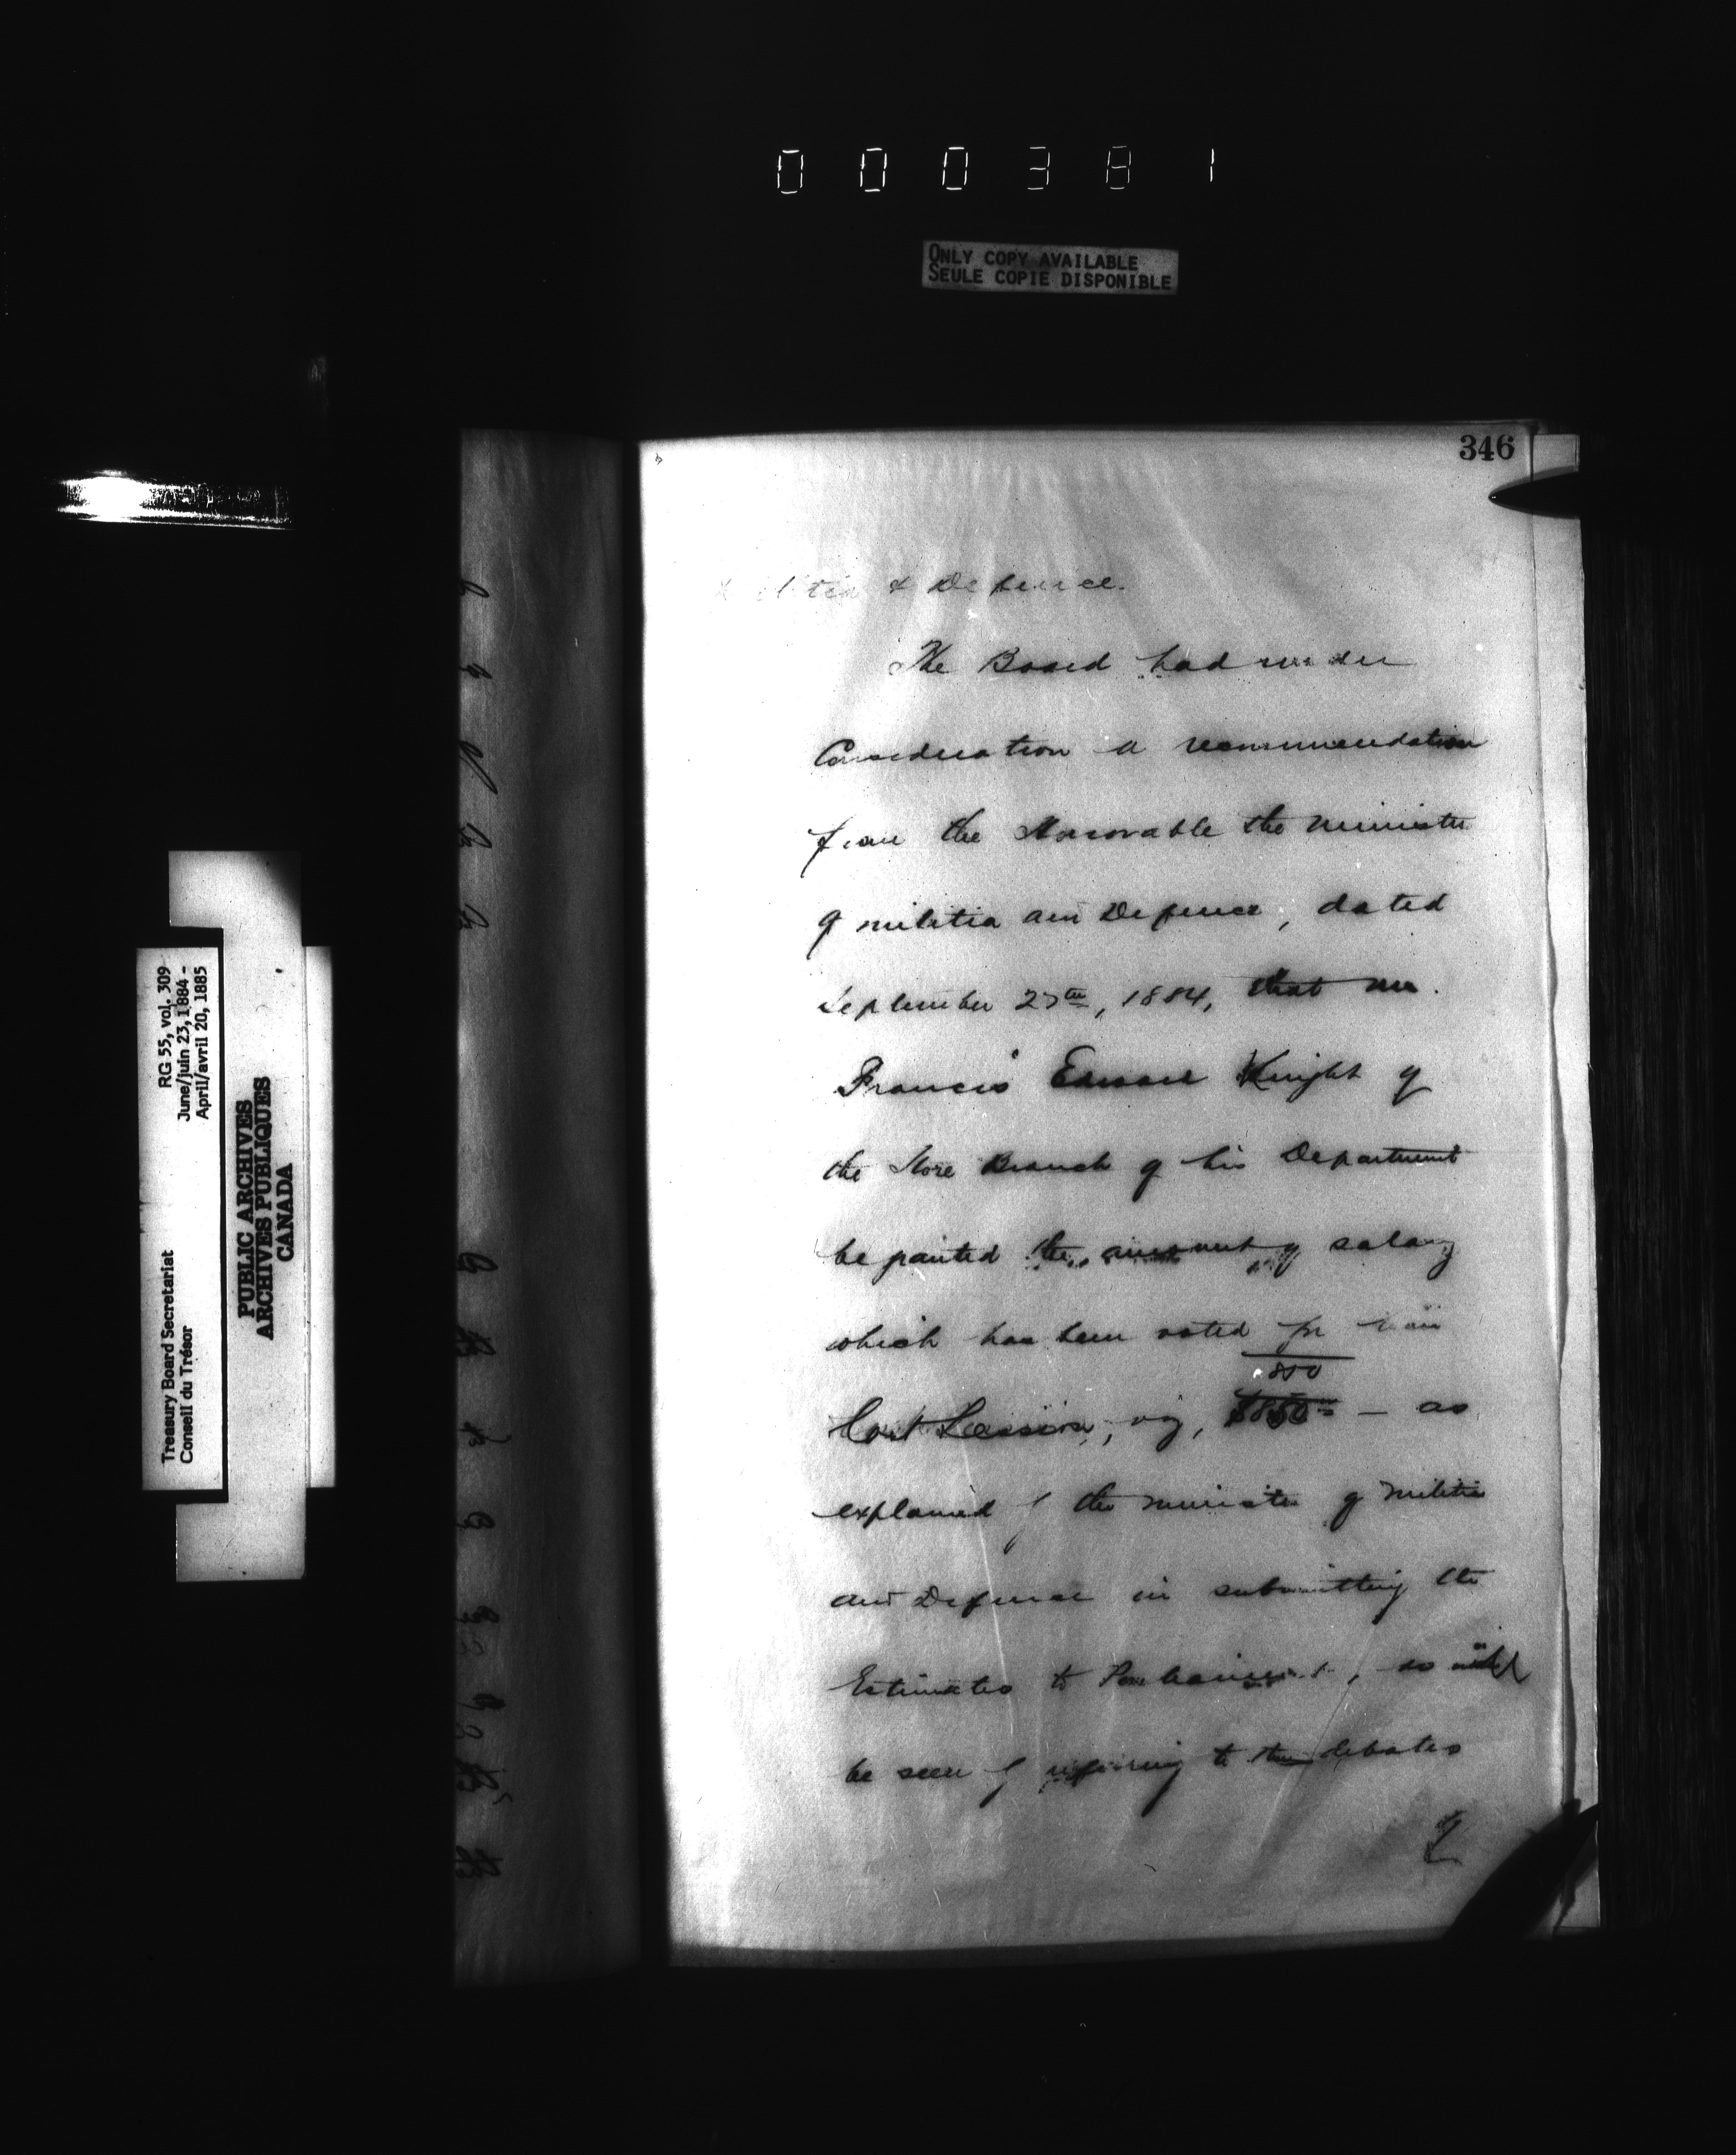 000381
ONLY COPY AVAILABLE
SEULE COPIE DISPONIBLE
346
Militia & Defence.
The Board had under
Consideration a recommendation
from the Honorable the Minister
of Militia and Defence, dated
September 27th, 1884, that Mr.
Francis Edward Knight of
the Store Branch of his Department
be granted the amount of salary
which has been voted for him
last Session, viz,
850
$850 — as
explained by the Minister of Militia
and Defence in submitting the
Estimates to Parliament, as will
be seen by referring to the debates
of
Treasury Board Secretariat
Conseil du Trésor
RG 55, vol. 309
June/juin 23, 1884 -
April/avril 20, 1885
PUBLIC ARCHIVES
ARCHIVES PUBLIQUES
CANADA